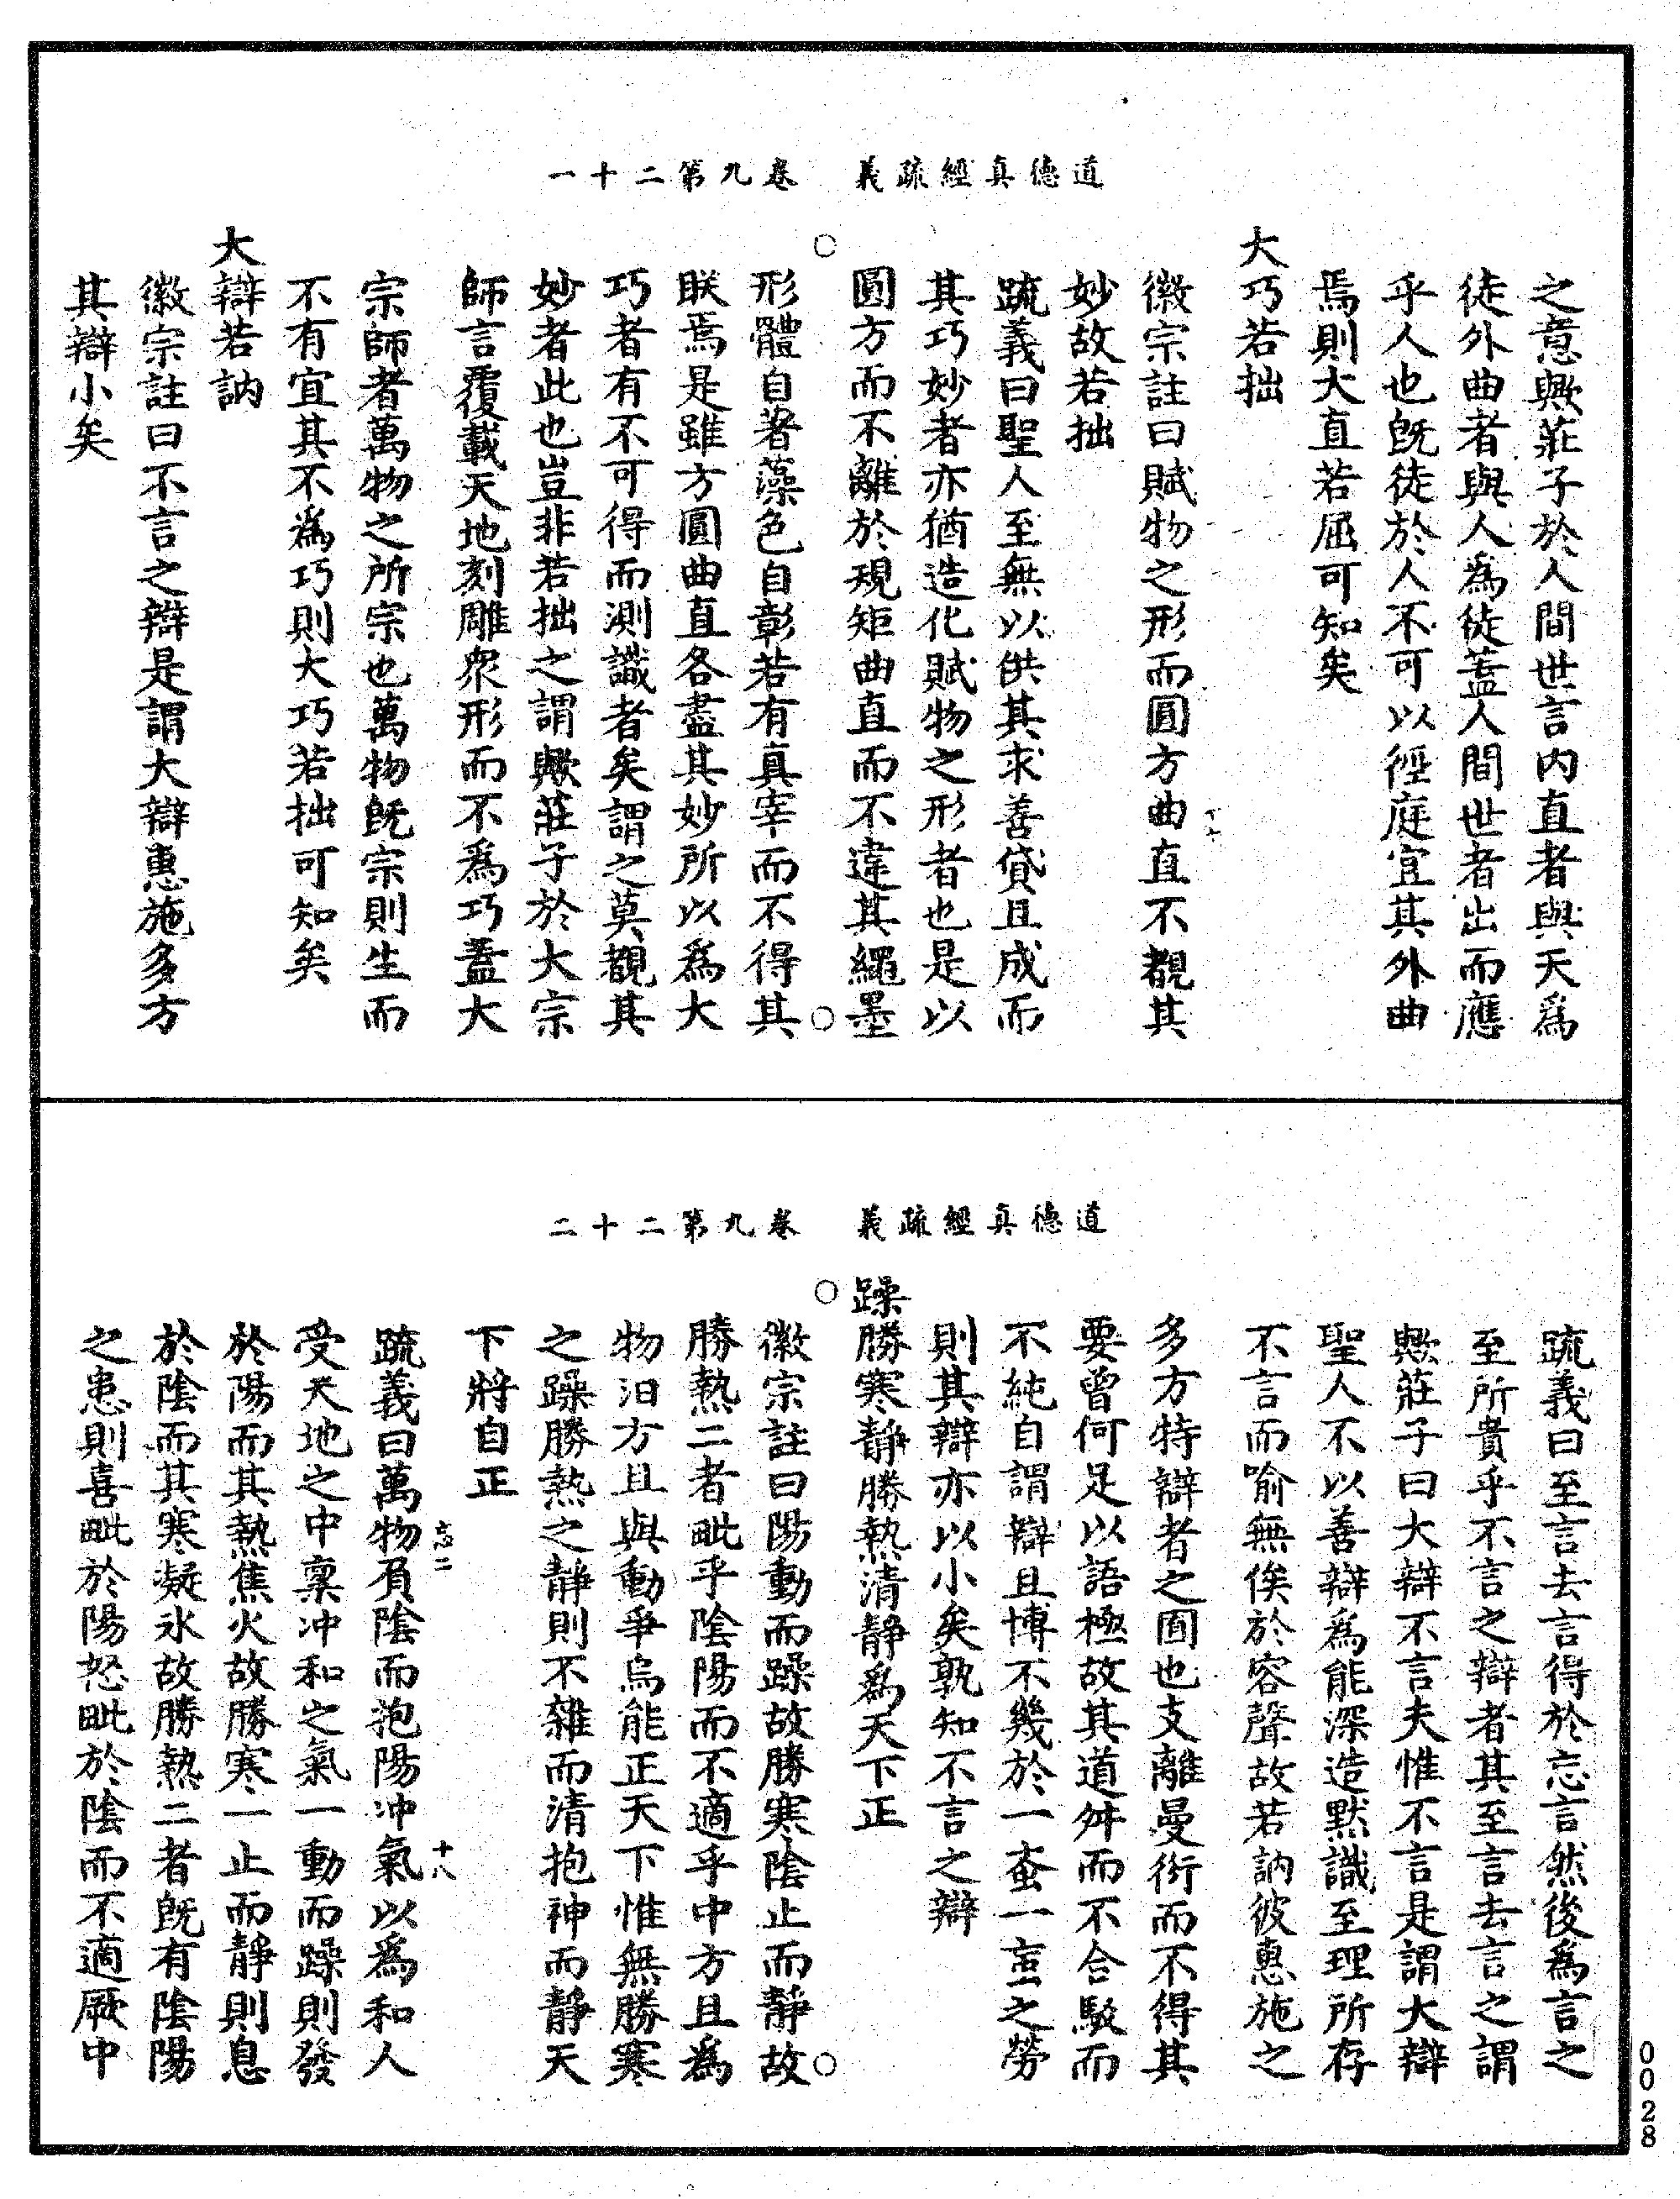 道德真經疏義　卷九第二十一
之意歟莊子於人間世言内直者與天爲
徒外曲者與人爲徒蓋人間世者出而應
乎人也旣徒於人不可以徑庭宜其外曲
焉則大直若屈可知矣
大巧若拙
徽宗註曰賦物之形而圓方曲直不覩其
妙故若拙
疏義曰聖人至無以供其求善貸且成而
其巧妙者亦猶造化賦物之形者也是以
圓方而不離於規矩曲直而不違其繩墨
形體自著藻色自彰若有真宰而不得其
眹焉是雖方圓曲直各盡其妙所以爲大
巧者有不可得而測識者矣謂之莫覩其
妙者此也豈非若拙之謂歟莊子於大宗
師言覆載天地刻雕衆形而不爲巧蓋大
宗師者萬物之所宗也萬物旣宗則生而
不有宜其不爲巧則大巧若拙可知矣
大辯若訥
徽宗註曰不言之辯是謂大辯惠施多方
其辯小矣
道德真經疏義　卷九第二十二
疏義曰至言去言得於忘言然後爲言之
至所貴乎不言之辯者其至言去言之謂
歟莊子曰大辯不言夫惟不言是謂大辯
聖人不以善辯爲能深造默識至理所存
不言而喻無俟於容聲故若訥彼惠施之
多方特辯者之囿也支離曼衍而不得其
要曾何足以語極故其道舛而不合駁而
不純自謂辯且博不幾於一蚉一䖟之勞
則其辯亦以小矣孰知不言之辯
躁勝寒靜勝熱清靜爲天下正
徽宗註曰陽動而躁故勝寒陰止而靜故
勝熱二者毗乎陰陽而不適乎中方且爲
物汩方且與動爭烏能正天下惟無勝寒
之躁勝熱之靜則不雜而清抱神而靜天
下將自正
志二　十八
疏義曰萬物負陰而抱陽冲氣以爲和人
受天地之中稟冲和之氣一動而躁則發
於陽而其熱焦火故勝寒一止而靜則息
於陰而其寒凝氷故勝熱二者旣有陰陽
之患則喜毗於陽怒毗於陰而不適厥中
0028